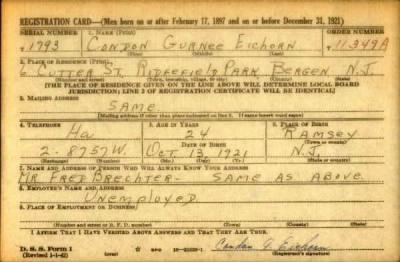 REGISTRATION CARD—(Men born on or after February 17, 1897 and on or before December 31, 1921)
SERIAL NUMBER 1. NAME (Print) ORDER NUMBER
T 1793 CONDON GURNEE EICHORN 11349A
2. PLACE OF RESIDENCE (Print)
6 CUTTER ST. RIDGEFIELD PARK BERGEN N.J.
(Number and street) (Town, township, village, or city) (County) (State)
[THE PLACE OF RESIDENCE GIVEN ON THE LINE ABOVE WILL DETERMINE LOCAL BOARD
JURISDICTION; LINE 2 OF REGISTRATION CERTIFICATE WILL BE IDENTICAL]
3. MAILING ADDRESS
SAME
[Mailing address if other than place indicated on line 2. If same insert word same]
4. TELEPHONE 5. AGE IN YEARS 6. PLACE OF BIRTH
Ha 24 RAMSEY
DATE OF BIRTH (Town or county)
2-8757W OCT 13 1921 N.J.
(Exchange) (Number) (Mo.) (Day) (Yr.) (State or country)
7. NAME AND ADDRESS OF PERSON WHO WILL ALWAYS KNOW YOUR ADDRESS
MR FRED BRECHTER - SAME AS ABOVE
8. EMPLOYER'S NAME AND ADDRESS
UNEMPLOYED
9. PLACE OF EMPLOYMENT OR BUSINESS
(Number and street or R. F. D. number) (Town) (County) (State)
I AFFIRM THAT I HAVE VERIFIED ABOVE ANSWERS AND THAT THEY ARE TRUE.
D. S. S. Form 1
(Revised 1-1-42) GPO Condon G. Eichorn
(Registrant's signature)